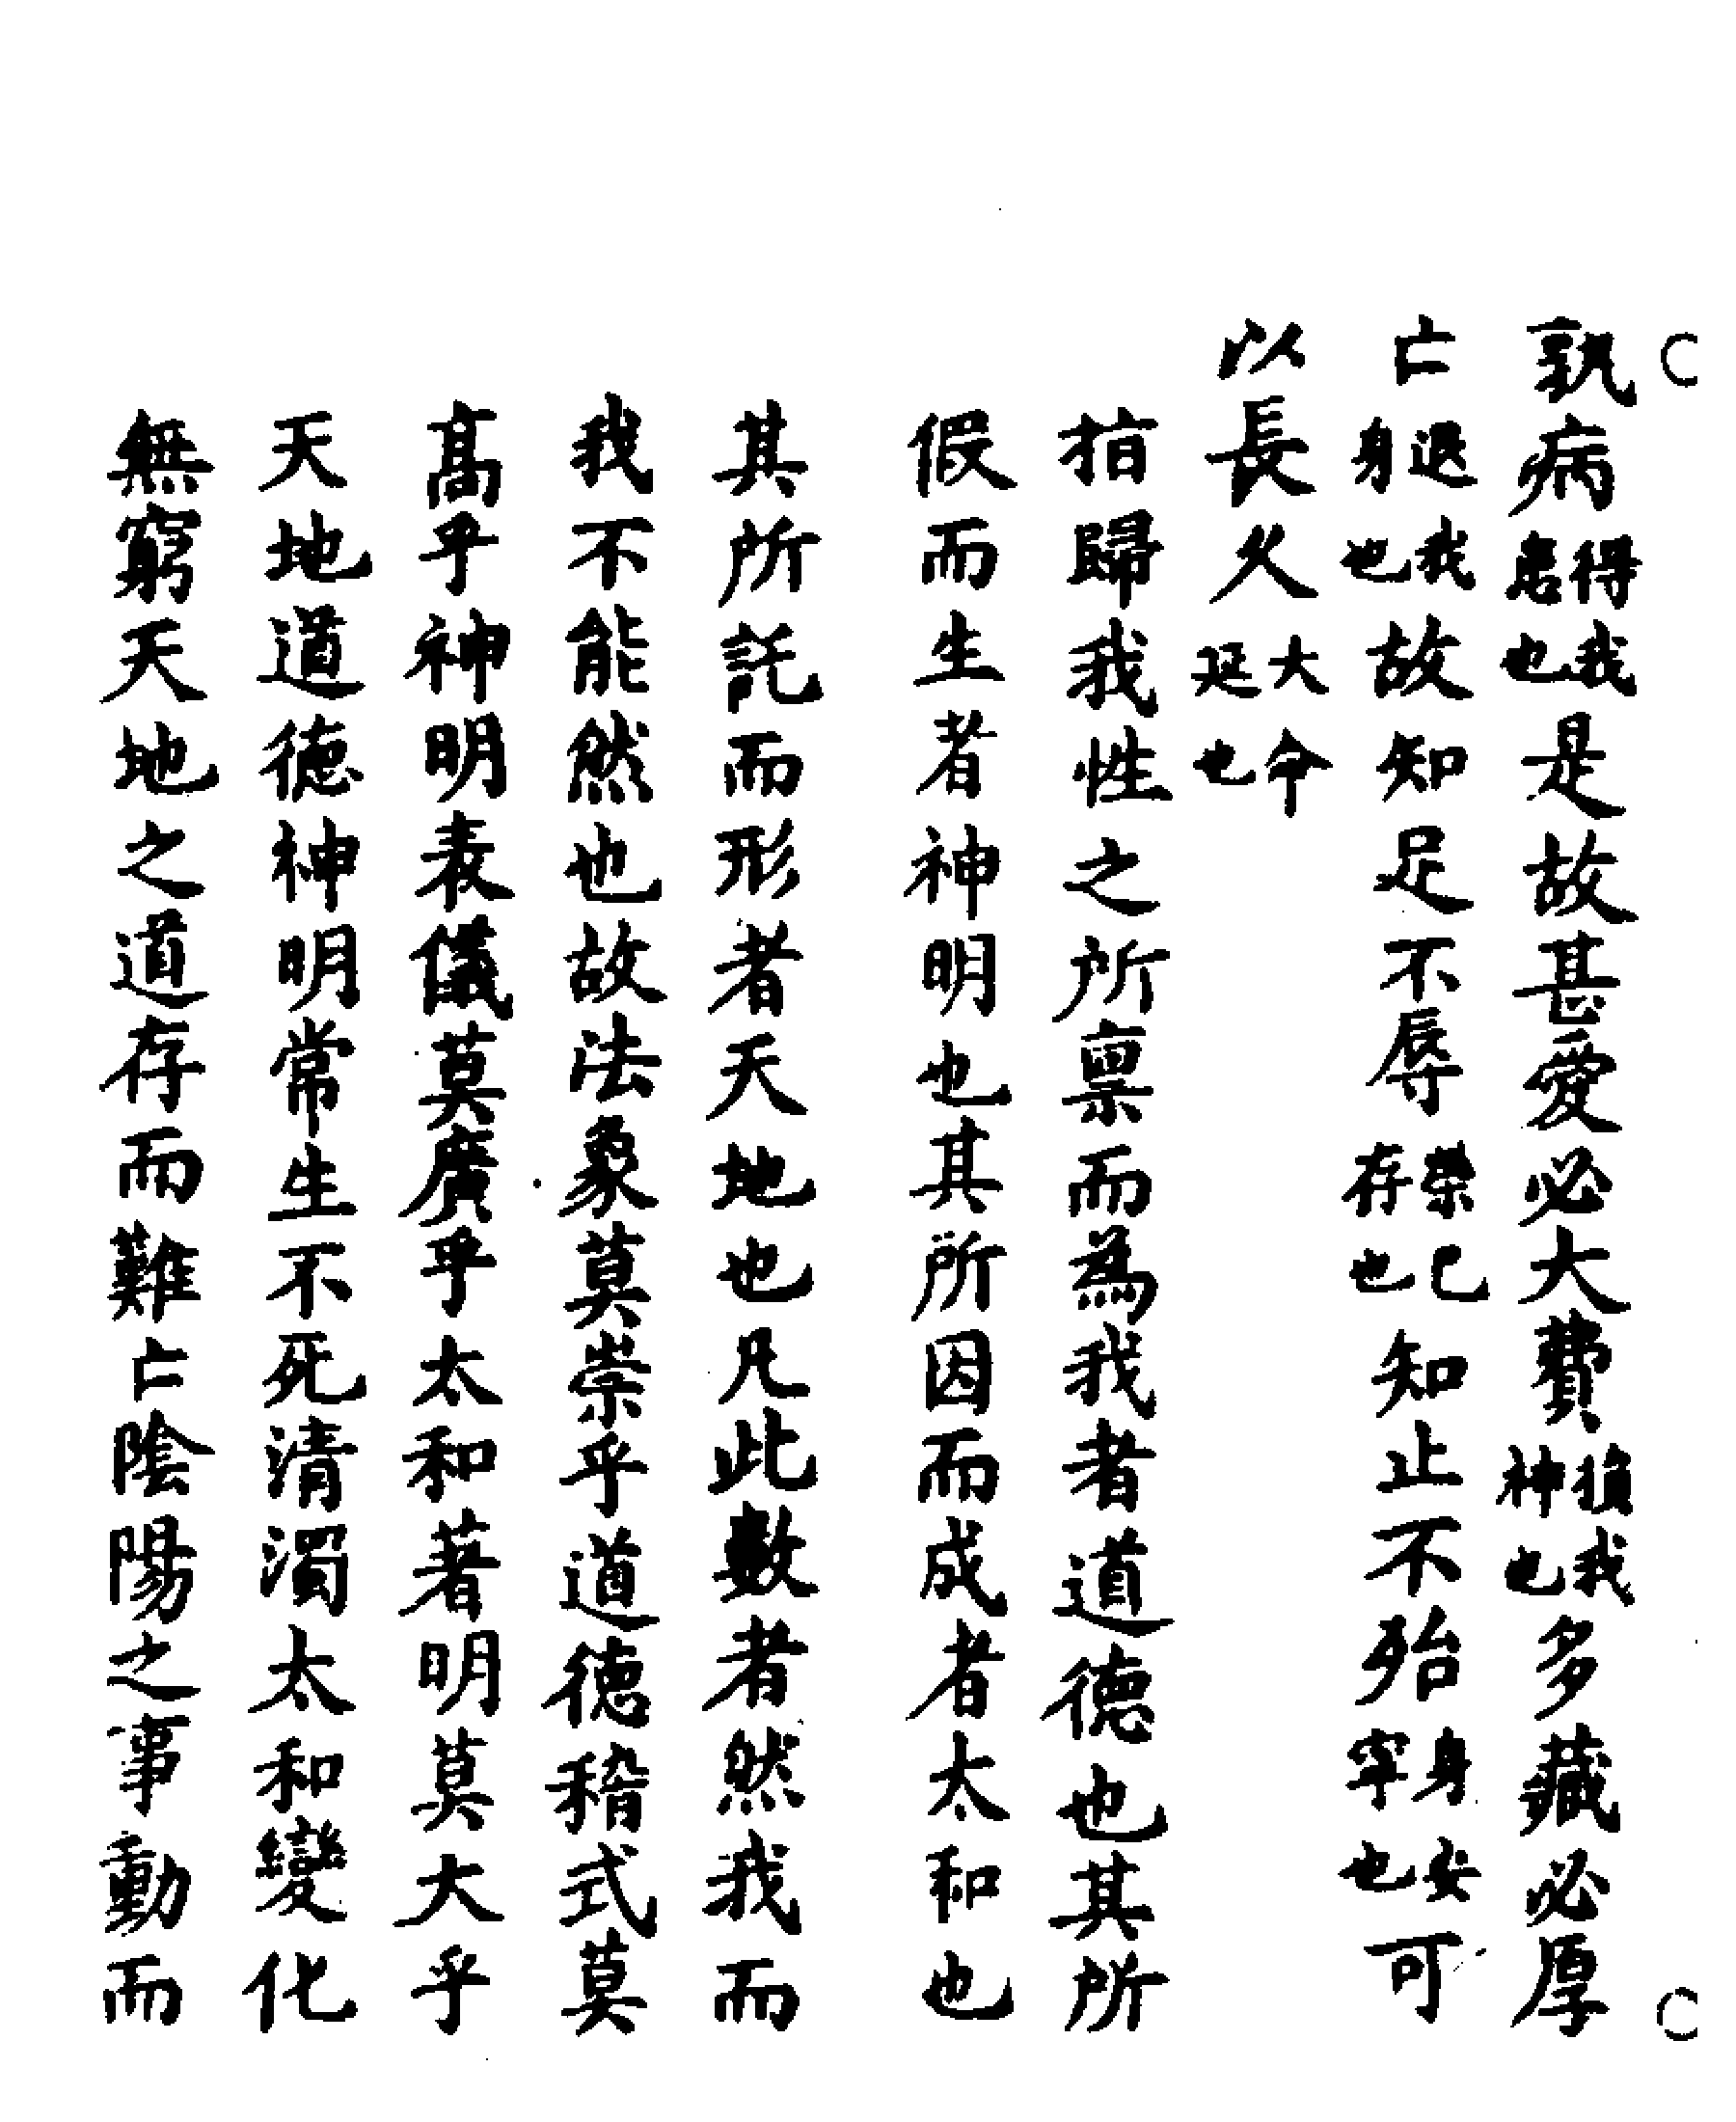 孰病得我患也是故甚愛必大費損我神也多藏必厚
亡退我身也故知足不辱榮已存也知止不殆身安寧也可
以長久大命延也
指歸我性之所稟而為我者道德也其所
假而生者神明也其所因而成者太和也
其所託而形者天地也凡此數者然我而
我不能然也故法象莫崇乎道德稽式莫
高乎神明表儀莫廣乎太和著明莫大乎
天地道德神明常生不死清濁太和變化
無窮天地之道存而難亡陰陽之事動而